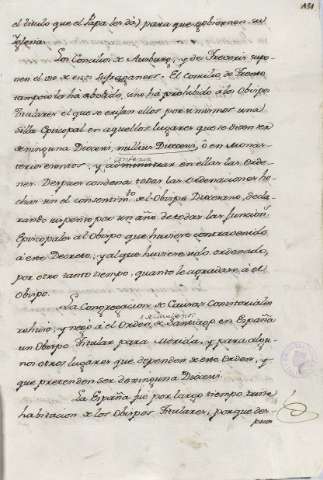 181
el titulo que el Papa les dá) para que gobiernen su
Iglesia.
Los Concilios de Ausburg, y de Treveris supo-
nen el uso de estos sufraganeos. El Concilio de Trento
tampoco lo ha abolido, uno ha prohibido à los Obispos
Titulares el que se erijan ellos por si mismos una
silla Episcopal en aquellos lugares que se dicen ser
de ninguna Diocesi, nullius Diœcesis, ò en Monas-
terios exentos, y conferir en ellas las Orde-
nes. Despues condena todas las Ordenaciones he-
chas sin el consentim.to del Obispo Diocesano, decla-
rando suspenso por un año de todas las funciones
Episcopales al Obispo que huviere contravenido
à este Decreto, y al que huviere sido ordenado,
por otro tanto tiempo, quanto le agradare à el
Obispo.
La Congregacion de Causas Consistoriales
rehusó, y negó à el Orden de Santiago en España
un Obispo Titular para Merida, y para algu-
nos otros lugares que dependen de este Orden, y
que pretenden ser de ninguna Diocesi.
La España fue por largo tiempo la
habitacion de los Obispos Titulares, porque des-
pues